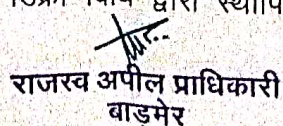 द्वारा
राजस्व अपील प्राधिकारी
बाड़मेर